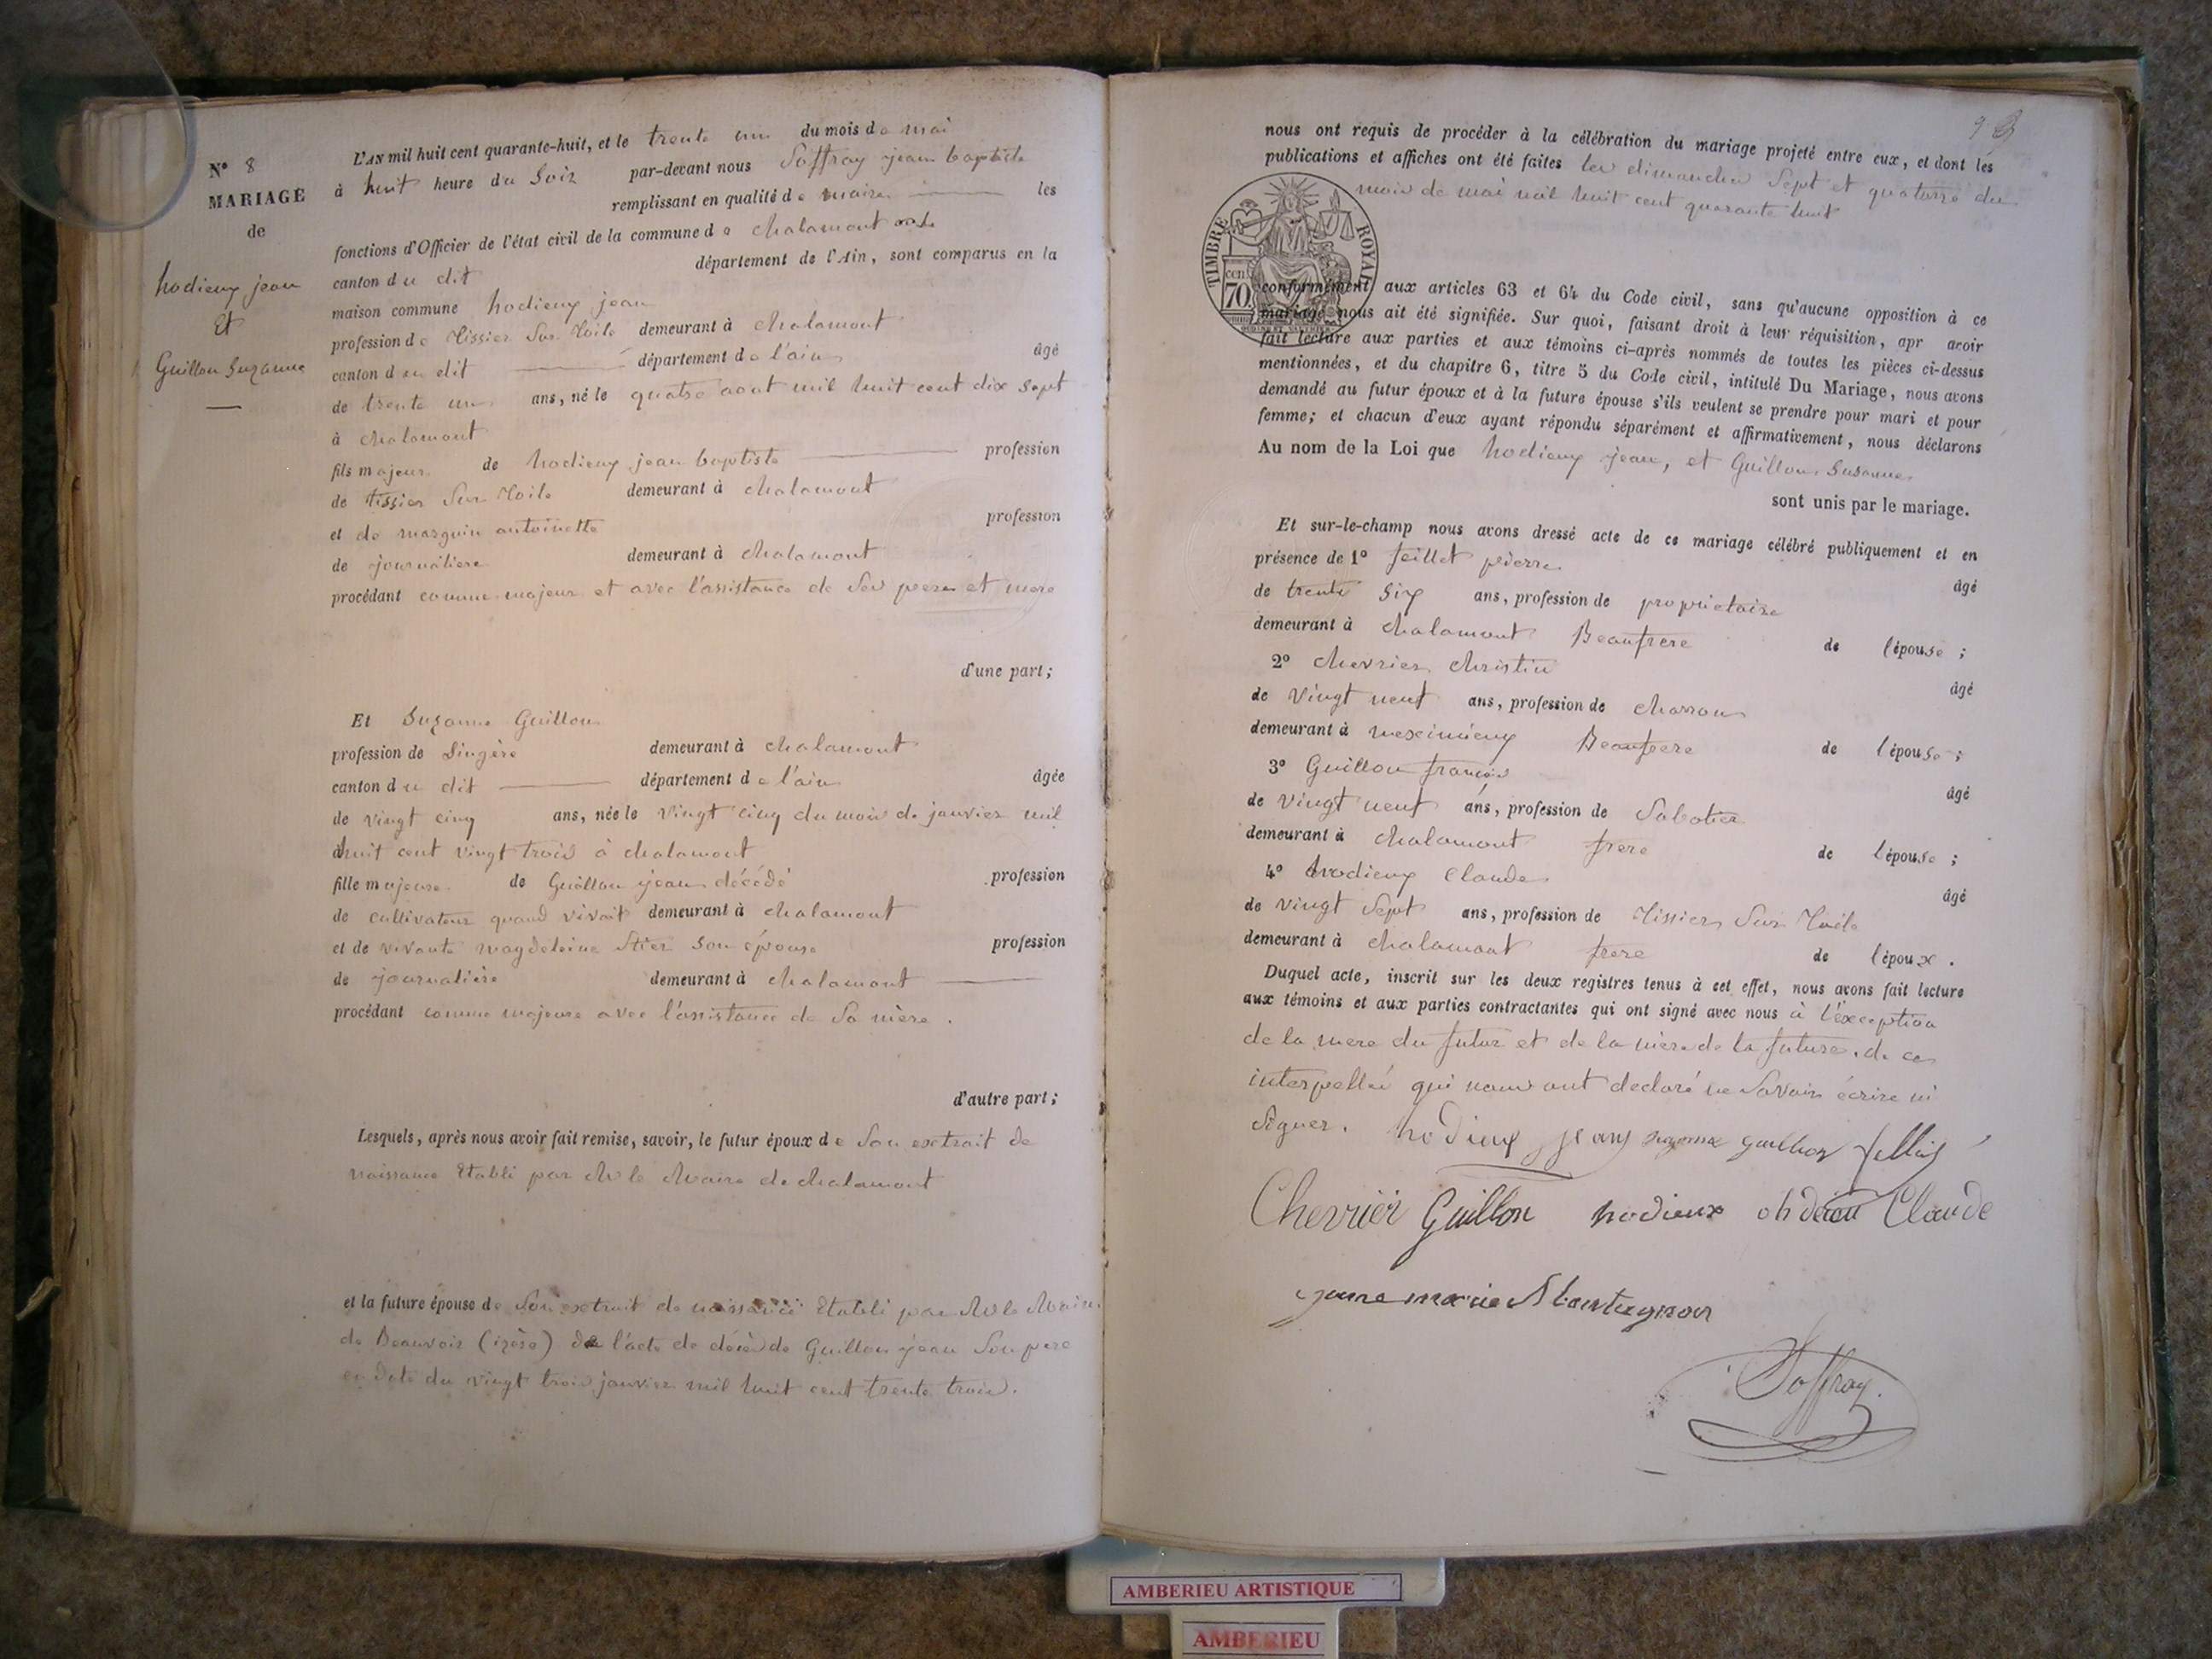 N° 8
MARIAGE
de
hodieux jean
Et
Guillon Suzanne
L'AN mil huit cent quarante-huit, et le trente un du mois de mai
à huit heure du Soir par-devant nous Soffray jean baptiste
remplissant en qualité de maire les
fonctions d'Officier de l'état civil de la commune de chalamont
canton du dit département de l'Ain, sont comparus en la
maison commune hodieux jean
profession de Tissier Sur Toile demeurant à chalamont
canton du dit département de l'ain âgé
de trente un ans, né le quatre aout mil huit cent dix sept
à chalamont
fils majeur de hodieux jean baptiste profession
de tissier Sur Toile demeurant à chalamont
et de marguin antoinette profession
de journalière demeurant à chalamont
procédant comme majeur et avec l'assistance de Ses pere et mere
d'une part;
Et Suzanne Guillon
profession de Lingère demeurant à chalamont
canton du dit département de l'ain âgée
de vingt cinq ans, née le vingt cinq du mois de janvier mil
huit cent vingt trois à chalamont
fille majeure de Guillon jean décédé profession
de cultivateur quand vivait demeurant à chalamont
et de vivante magdeleine Stier son épouse profession
de journalière demeurant à chalamont
procédant comme majeure avec l'assistance de Sa mère.
d'autre part;
Lesquels, après nous avoir fait remise, savoir, le futur époux de Son extrait de
naissance Etabli par Mr le Maire de chalamont
et la future épouse de Son extrait de naissance Etabli par Mr le Maire
de Beauvoir (izère) de l'acte de décès de Guillon jean Son pere
en date du vingt trois janvier mil huit cent trente trois.
93
nous ont requis de procéder à la célébration du mariage projeté entre eux, et dont les
publications et affiches ont été faites les dimanches Sept et quatorze du
mois de mai mil huit cent quarante huit
TIMBRE ROYAL
cen.
70.
conformément aux articles 63 et 64 du Code civil, sans qu'aucune opposition à ce
mariage nous ait été signifiée. Sur quoi, faisant droit à leur réquisition, apr avoir
fait lecture aux parties et aux témoins ci-après nommés de toutes les pièces ci-dessus
mentionnées, et du chapitre 6, titre 5 du Code civil, intitulé Du Mariage, nous avons
demandé au futur époux et à la future épouse s'ils veulent se prendre pour mari et pour
femme; et chacun d'eux ayant répondu séparément et affirmativement, nous déclarons
Au nom de la Loi que hodieux jean, et Guillon Susanne
sont unis par le mariage.
Et sur-le-champ nous avons dressé acte de ce mariage célébré publiquement et en
présence de 1° feillet pierre âgé
de trente Six ans, profession de propriétaire
demeurant à chalamont Beaufrere de lépouse;
2° chevrier christin âgé
de vingt neuf ans, profession de charron
demeurant à meximieux Beaufrere de lépouse;
3° Guillon françois âgé
de vingt neuf ans, profession de Sabotier
demeurant à chalamont frere de lépouse;
4° hodieux Claude âgé
de vingt Sept ans, profession de Tissier Sur Toile
demeurant à chalamont frere de lépoux.
Duquel acte, inscrit sur les deux registres tenus à cet effet, nous avons fait lecture
aux témoins et aux parties contractantes qui ont signé avec nous à l'exception
de la mere du futur et de la mère de la future. de ce
interpellé qui nous ont declaré ne Savoir écrire ni
Signer. hodieux jean suzanne guillon
Chevrier Guillon hodieux Claude
marie
Soffray.
AMBERIEU ARTISTIQUE
AMBERIEU